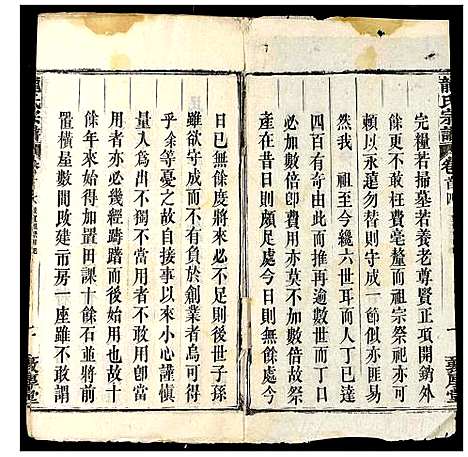 龍氏宗譜
卷首四
完糧若掃墓若養老尊賢正項開銷外
餘更不敢枉費亳釐而祖宗祭祀亦可
賴以永遠勿替則守成一節似亦匪易
然我　祖至今纔六世耳而人丁已達
四百有奇由此而再推再遍無論人數
必加數倍而用亦莫不加數倍故祭
產在昔日則頗足處今日則無餘處今
敦厚堂
日已無餘度將來必不足則後世子孫
雖欲守成而不有負於創業者烏可得
乎余等憂之故自承接事以來小心謹慎
量入為出不獨不當用者不用即當
用者亦必幾經躊躇而後始用故十
餘年內又積置田課十餘石並將前
置橫屋數間改建一市房一座雖不敢謂
龍氏宗譜